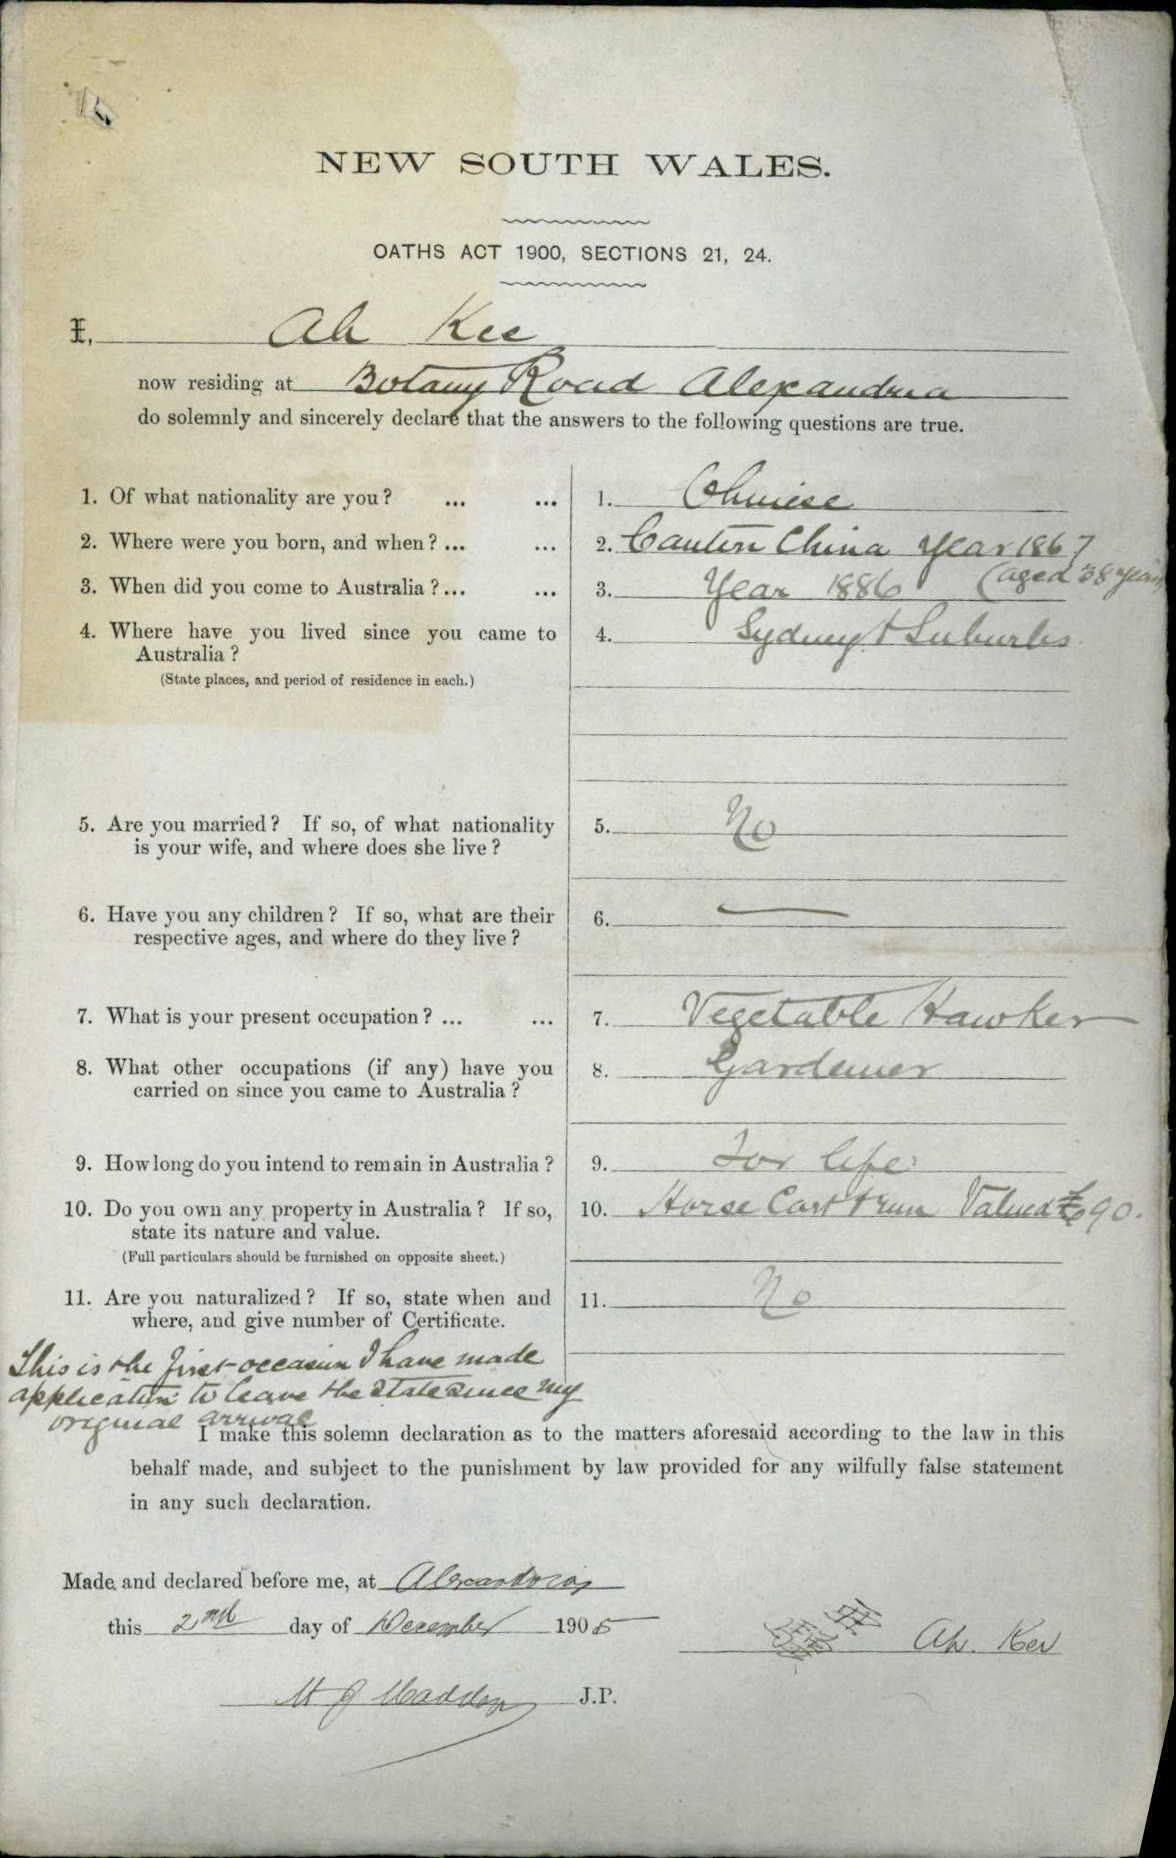 NEW SOUTH WALES.
OATHS ACT 1900, SECTIONS 21, 24.
I, Ah Kee
now residing at Botany Road Alexandria
do solemnly and sincerely declare that the answers to the following questions are true.
1. Of what nationality are you? ... ... 1. Chinese
2. Where were you born, and when? ... ... 2. Canton China Year 1867
(aged 38 years)
3. When did you come to Australia? ... ... 3. Year 1886
4. Where have you lived since you came to 4. Sydney & Suburbs
Australia?
(State places, and period of residence in each.)
5. Are you married? If so, of what nationality 5. No
is your wife, and where does she live?
6. Have you any children? If so, what are their 6. —
respective ages, and where do they live?
7. What is your present occupation? ... ... 7. Vegetable Hawker
8. What other occupations (if any) have you 8. Gardener
carried on since you came to Australia?
9. How long do you intend to remain in Australia? 9. For life
10. Do you own any property in Australia? If so, 10. Horse Cart & run Valued £90.
state its nature and value.
(Full particulars should be furnished on opposite sheet.)
11. Are you naturalized? If so, state when and 11. No
where, and give number of Certificate.
This is the first occasion I have made
application to leave the State since my
original arrival
I make this solemn declaration as to the matters aforesaid according to the law in this
behalf made, and subject to the punishment by law provided for any wilfully false statement
in any such declaration.
Made and declared before me, at Alexandria
this 2nd day of December 1905
Ah. Kee
J.P.